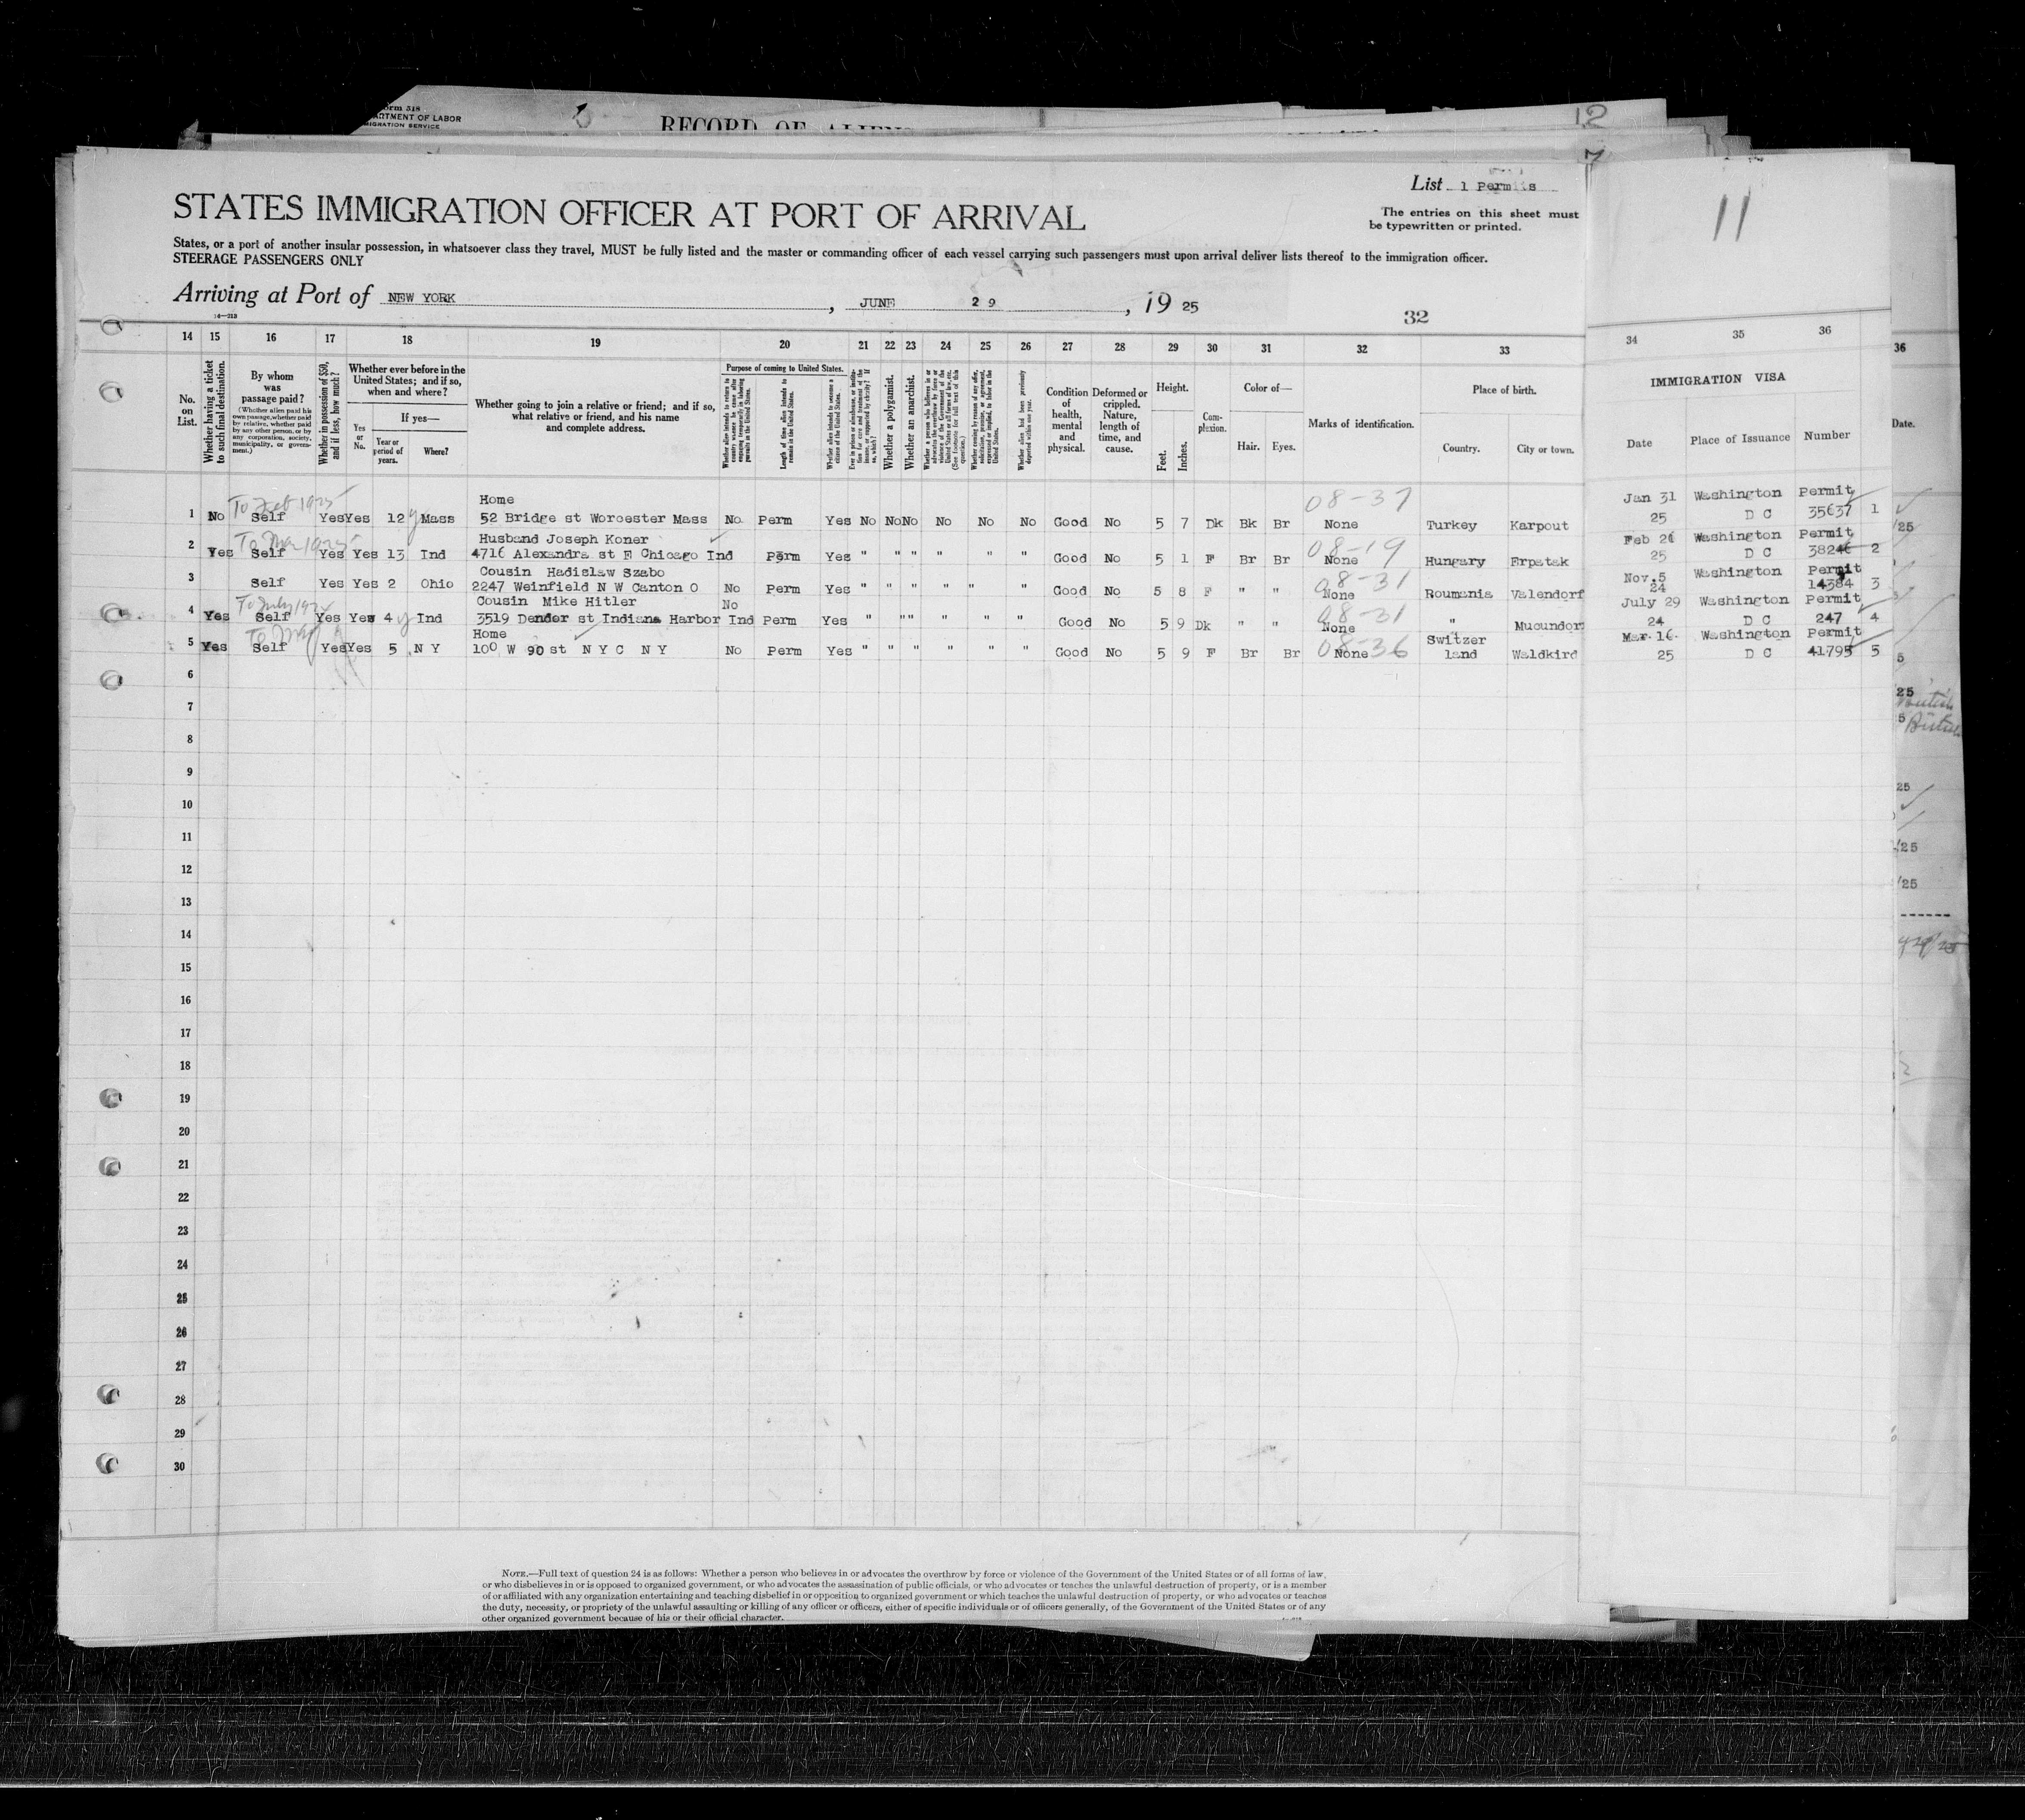 Form 518
ARTMENT OF LABOR
MIGRATION SERVICE
RECORD OF ALIENS
12
7
List 1 Permits
11
STATES IMMIGRATION OFFICER AT PORT OF ARRIVAL
The entries on this sheet must
be typewritten or printed.
States, or a port of another insular possession, in whatsoever class they travel, MUST be fully listed and the master or commanding officer of each vessel carrying such passengers must upon arrival deliver lists thereof to the immigration officer.
STEERAGE PASSENGERS ONLY
Arriving at Port of NEW YORK, JUNE 29, 1925
32
14 15 16 17 18 19 20 21 22 23 24 25 26 27 28 29 30 31 32 33 34 35 36
No. on List.
Whether having a ticket to such final destination.
By whom was passage paid?
(Whether alien paid his own passage, whether paid by relative, whether paid by any other person, or by any corporation, society, municipality, or government.)
Whether in possession of $50, and if less, how much?
Whether ever before in the United States; and if so, when and where?
If yes—
Yes or No.
Year or period of years.
Where?
Whether going to join a relative or friend; and if so, what relative or friend, and his name and complete address.
Purpose of coming to United States.
Length of time alien intends to remain in the United States.
Whether alien intends to become a citizen of the United States.
Whether a polygamist.
Whether an anarchist.
Whether alien had been previously deported within one year.
Condition of health, mental and physical.
Deformed or crippled. Nature, length of time, and cause.
Height.
Feet.
Inches.
Complexion.
Color of—
Hair.
Eyes.
Marks of identification.
Place of birth.
Country.
City or town.
IMMIGRATION VISA
Date
Place of Issuance
Number
36
Date.
To Feb 1925 Home 08-37 Jan 31 Washington Permit
1 No Self Yes Yes 12 y Mass 52 Bridge st Worcester Mass No Perm Yes No No No No No No Good No 5 7 Dk Bk Br None Turkey Karpout 25 D C 35637 1
To Mar 1925 Husband Joseph Koner 08-19 Feb 26 Washington Permit
2 Yes Self Yes Yes 13 Ind 4716 Alexandra st E Chicago Ind Perm Yes " " " " " " Good No 5 1 F Br Br None Hungary Erpatak 25 D C 38246 2
Cousin Hadislaw Szabo 08-31 Nov.5 Washington Permit
3 Self Yes Yes 2 Ohio 2247 Weinfield N W Canton O No Perm Yes " " " " " " Good No 5 8 F " " None Roumania Valendorf 24 14384 3
To July 1924 Cousin Mike Hitler No 08-31 July 29 Washington Permit
4 Yes Self Yes Yes 4 y Ind 3519 Dender st Indiana Harbor Ind Perm Yes " " " " " " Good No 5 9 Dk " " None " Mucundorf 24 D C 247 4
Home 08-36 Mar 16 Washington Permit
5 Yes Self Yes Yes 5 N Y 100 W 90 st N Y C N Y No Perm Yes " " " " " " Good No 5 9 F Br Br None Switzer land Waldkird 25 D C 41795 5
6
7
8
9
10
11
12
13
14
15
16
17
18
19
20
21
22
23
24
25
26
27
28
29
30
NOTE.—Full text of question 24 is as follows: Whether a person who believes in or advocates the overthrow by force or violence of the Government of the United States or of all forms of law,
or who disbelieves in or is opposed to organized government, or who advocates the assassination of public officials, or who advocates or teaches the unlawful destruction of property, or is a member
of or affiliated with any organization entertaining and teaching disbelief in or opposition to organized government or which teaches the unlawful destruction of property, or who advocates or teaches
the duty, necessity, or propriety of the unlawful assaulting or killing of any officer or officers, either of specific individuals or of officers generally, of the Government of the United States or of any
other organized government because of his or their official character.